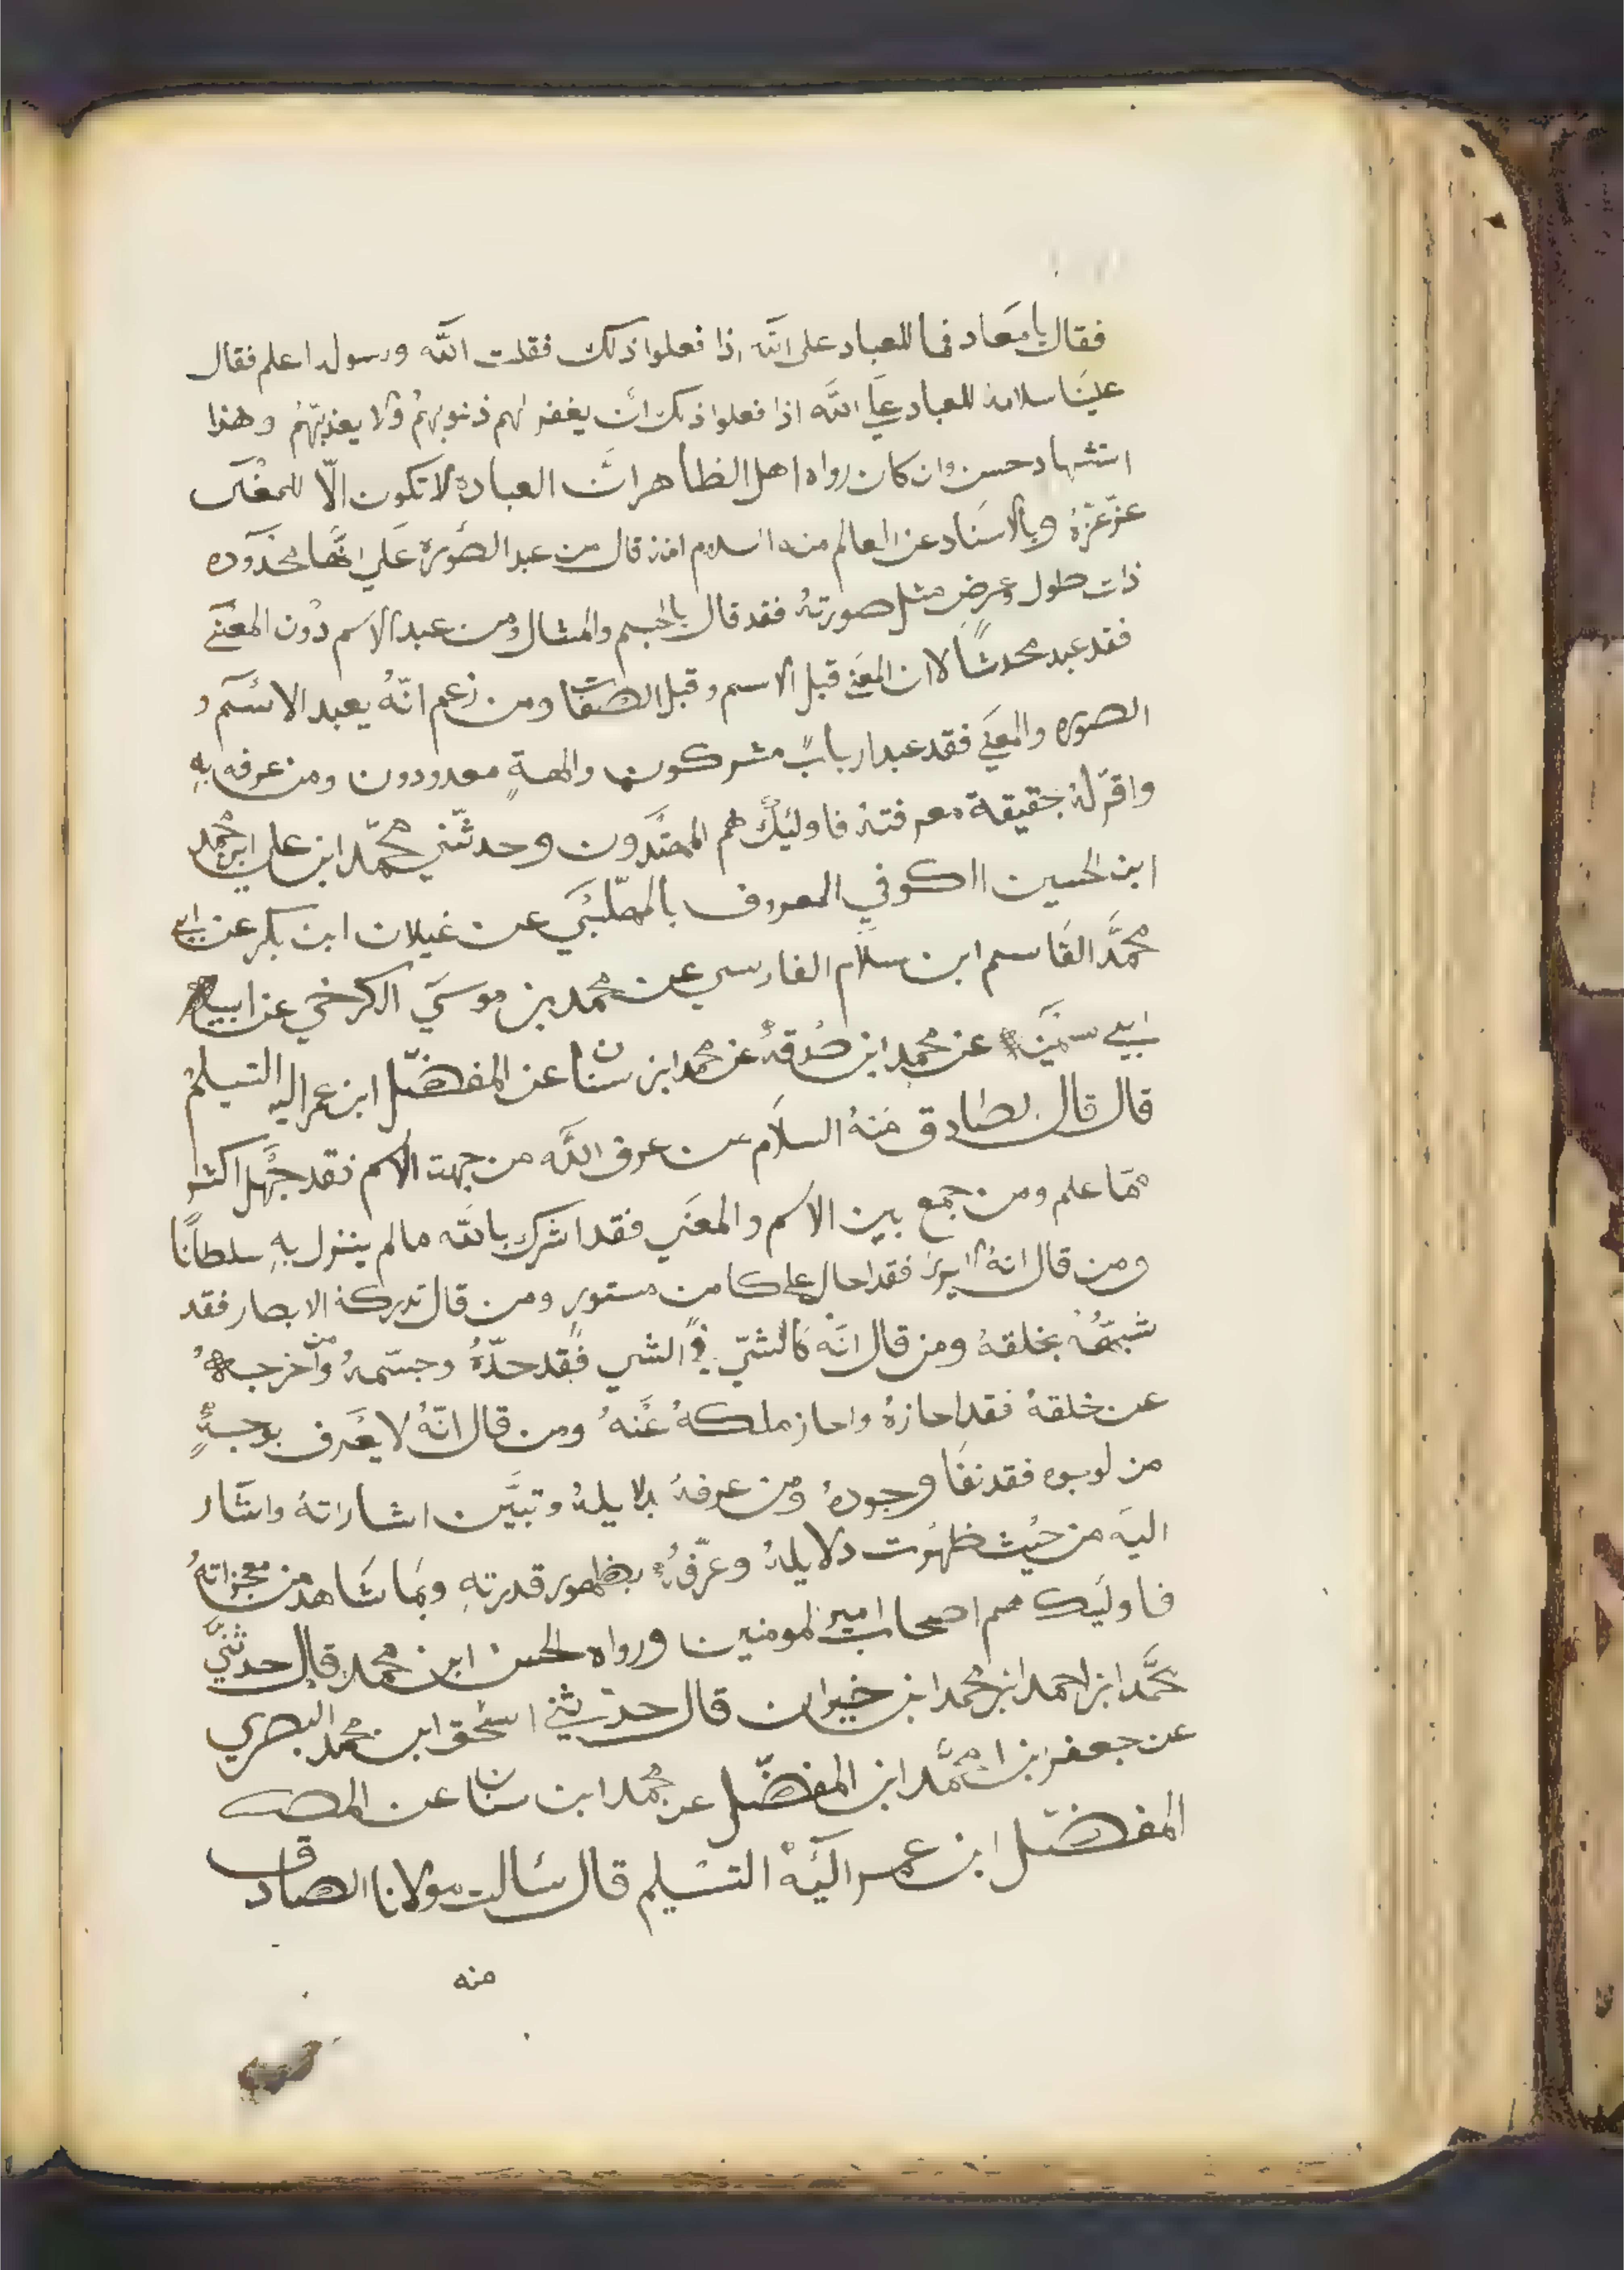 فقال يا معاد فما للعباد على الله اذا فعلوا ذلك فقلت الله ورسوله اعلم فقال
علينا سلامه للعباد علي الله اذا فعلوا ذلك ان يغفر لهم ذنوبهم ولا يعذبهم وهذا
استشهاد حسن وان كان رواه اهل الظاهر ان العبادة لا تكون الّا للمعنى
عزّ عزّه وبالاسناد عن العالم منه السلام انه قال من عبد الصورة علي انها محدوده
ذات طول وعرض مثل صورته فقد قال بالجسم والمثال ومن عبد الاسم دون المعنى
فقد عبد محدثاً لان المعنى قبل الاسم وقبل الصفات ومن زعم انّه يعبد الاسم و
الصوره والمعنى فقد عبد ارباب مشركون والهةٍ معدودون ومن عرفه به
واقرّ له بحقيقة معرفته فاوليك هم المهتدون وحدثني محمّد ابن علي ابن محمد
ابن الحسين الكوفي المعروف بالمهلّبي عن غيلان ابن بكر عن ابي
محمّد القاسم ابن سلام الفارسي عن محمد بن موسي الكرخي عن ابيه
ابي سمينه عن محمد ابن صدقه عن محمد ابن سنان عن المفضّل ابن عمر اليه التسليم
قال قال الصادق منه السلام من عرف الله من جهت الاسم فقد جهل اكثر
ممّا علم ومن جمع بين الاسم والمعني فقد اشرك بالله ما لم ينزل به سلطانا
ومن قال انه لا يرى فقد احال علي كامن مستور ومن قال تدركه الابصار فقد
شبهه بخلقه ومن قال انّه كالشيّ في الشي فقد حدّه وجسّمه ومن اخرجه
عن خلقه فقد احازه واحاز ملكه عنه ومن قال انّه لا يعرف بوجهٍ
من لوجوه فقد نفا وجوده ومن عرفه بدلايله وتبيّن اشاراته واشار
اليه من حيث ظهرت دلايله وعرّفه بظهور قدرته وبما شاهد من معجزاته
فاوليك هم اصحاب امير المومنين ورواه الحسن ابن محمد قال حدثني
محمّد ابن احمد ابن محمد ابن خيران قال حدثني اسحق ابن محمد البصري
عن جعفر بن محمّد ابن المفضّل عن محمد ابن سنان عن المص
المفضّل ابن عمر اليه التسليم قال سالت مولانا الصادق
منه